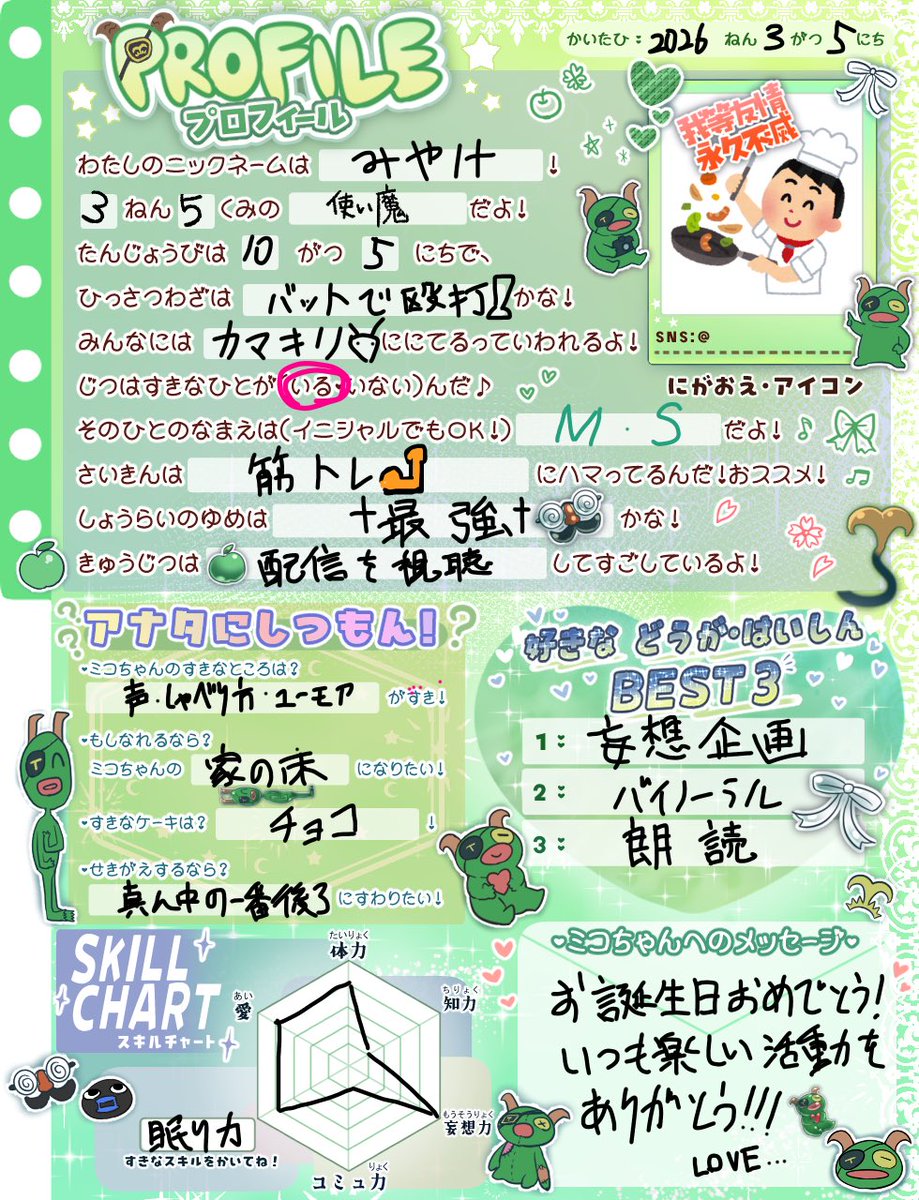 PROFILE
プロフィール
かいたひ：2026 ねん 3 がつ 5 にち
わたしのニックネームは みやけ ！
3 ねん 5 くみの 使い魔 だよ！
たんじょうびは 10 がつ 5 にちで、
ひっさつわざは バットで殴打 かな！
みんなには カマキリ ににてるっていわれるよ！
じつはすきなひとが(いる・いない)んだ♪
そのひとのなまえは(イニシャルでもOK！) M・S だよ！♪
さいきんは 筋トレ にハマってるんだ！おススメ！♫
しょうらいのゆめは †最強† かな！
きゅうじつは 配信を視聴 してすごしているよ！
我等友情
永久不滅
SNS:@
にがおえ・アイコン
アナタにしつもん！
ミコちゃんのすきなところは？
声・しゃべり方・ユーモア がすき！
もしなれるなら？
ミコちゃんの 家の床 になりたい！
すきなケーキは？ チョコ ！
せきがえするなら？
真ん中の一番後ろ にすわりたい！
好きな どうが・はいしん
BEST3
1： 妄想企画
2： バイノーラル
3： 朗読
SKILL
CHART
スキルチャート
たいりょく
体力
ちりょく
知力
もうそうりょく
妄想力
コミュ力
りょく
眠り力
すきなスキルをかいてね！
あい
愛
ミコちゃんへのメッセージ
お誕生日おめでとう！
いつも楽しい活動を
ありがとう!!!
LOVE...